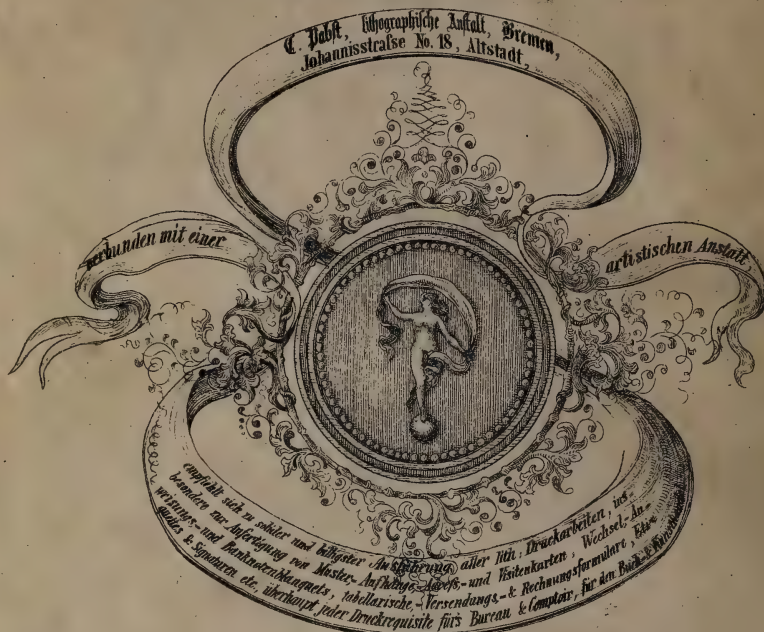 C. Pabst, lithographische Anstalt, Bremen,
Johannisstraſse No. 18, Altstadt,
verbunden mit einer
artistischen Anstalt,
empfiehlt sich zu solider und billigster Ausführung aller lith: Druckarbeiten, ins-
besondere zur Anfertigung von Muster- Aufhänge- Adreſs- und Visitenkarten, Wechsel- An-
weisungs- und Banknotenblanquets, tabellarische, Versendungs- & Rechnungsformulare, Eti-
quettes & Signaturen etc. überhaupt jeder Druckrequisite fürs Bureau & Comptoir, für den Buch- & Kunsthandel